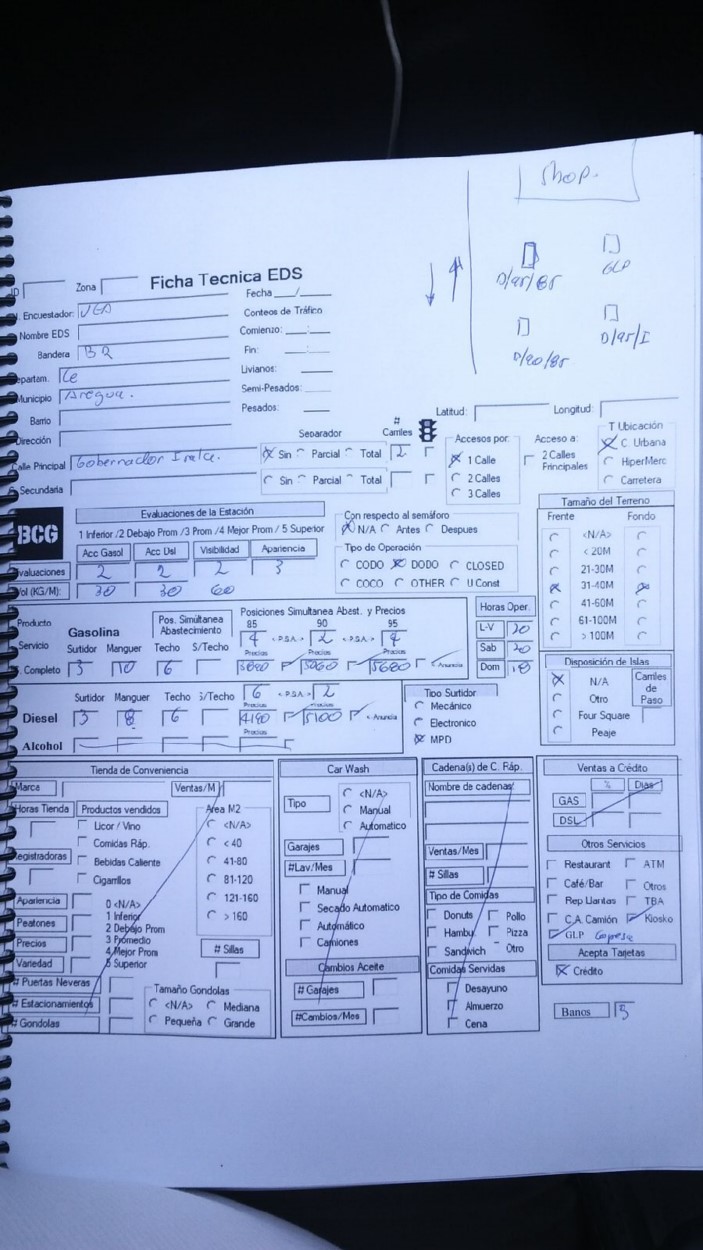 Shop.
D/95/85
GLP
D/90/85
D/95/I
Zona
Ficha Tecnica EDS
Fecha ___/___
Encuestador: VEA
Conteos de Tráfico
Nombre EDS
Comienzo: ___:___
Bandera BR
Fin: ___:___
Livianos: ____
Municipio Aregua.
Semi-Pesados: ____
Barrio
Pesados: ____
Dirección
Latitud:
Longitud:
Separador
# Carriles
Calle Principal Gobernador Irala.
Sin Parcial Total 2
Secundaria
Sin Parcial Total
Accesos por:
1 Calle
2 Calles
3 Calles
Acceso a:
2 Calles Principales
T Ubicación
C Urbana
HiperMerc
Carretera
BCG
Evaluaciones de la Estación
1 Inferior /2 Debajo Prom /3 Prom /4 Mejor Prom / 5 Superior
Acc Gasol Acc Dsl Visibilidad Apariencia
Evaluaciones 2 2 2 3
Vol (KG/M): 30 30 60
Con respecto al semáforo
N/A Antes Despues
Tipo de Operación
CODO DODO CLOSED
COCO OTHER U Const
Tamaño del Terreno
Frente Fondo
<N/A>
< 20M
21-30M
31-40M
41-60M
61-100M
> 100M
Producto
Servicio
Completo
Gasolina
Pos. Simültanea Abastecimiento
Posiciones Simultanea Abest. y Precios
85 90 95
4 <P.S.A> 2 <P.S.A> 4
Surtidor Manguer Techo S/Techo
Precios Precios Precios
3 10 6 5060 5680 < Anuncia
Horas Oper.
L-V 20
Sab 20
Dom 18
Surtidor Manguer Techo S/Techo 6 <P.S.A> 2
Precios Precios
Diesel 3 8 6 4190 5100 < Anuncia
Precios
Alcohol
Tipo Surtidor
Mecánico
Electronico
MPD
Disposición de Islas
N/A
Otro
Four Square
Peaje
Carriles de Paso
Tienda de Conveniencia
Marca
Ventas/M
Horas Tienda
Productos vendidos
Licor / Vino
Comidas Ráp.
Registradoras
Bebidas Caliente
Cigarrillos
Area M2
<N/A>
< 40
41-80
81-120
121-160
> 160
Apariencia
Peatones
Precios
Variedad
0 <N/A>
1 Inferior
2 Debajo Prom
3 Promedio
4 Mejor Prom
5 Superior
# Sillas
# Puertas Neveras
# Estacionamientos
# Gondolas
Tamaño Gondolas
<N/A> Mediana
Pequeña Grande
Car Wash
Tipo
<N/A>
Manual
Automatico
Garajes
#Lav/Mes
Manual
Secado Automatico
Automático
Camiones
Cambios Aceite
# Garajes
#Cambios/Mes
Cadena(s) de C. Ráp.
Nombre de cadenas
Ventas/Mes
# Sillas
Tipo de Comidas
Donuts Pollo
Hambu Pizza
Sandwich Otro
Comidas Servidas
Desayuno
Almuerzo
Cena
Ventas a Crédito
% Dias
GAS
DSL
Otros Servicios
Restaurant ATM
Café/Bar Otros
Rep Llantas TBA
C.A. Camión Kiosko
GLP
Acepta Tarjetas
Crédito
Banos 3